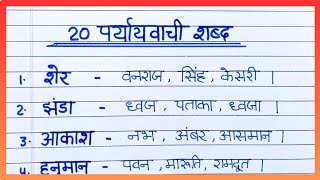 20 पर्यायवाची शब्द
1. शेर - वनराज, सिंह, केसरी।
2. झंडा - ध्वज, पताका, ध्वजा।
3. आकाश - नभ, अंबर, आसमान।
4. हनुमान - पवन, मारूति, रामदूत।